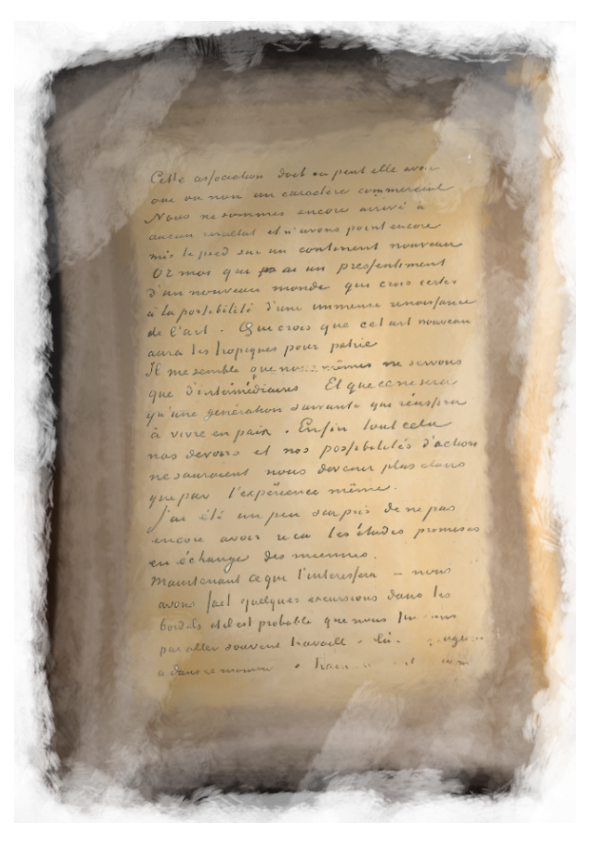 Cette association doit ou peut elle avoir
oui ou non un caractère commercial
Nous ne sommes encore arrivé à
aucun résultat et n'avons point encore
mis le pied sur un continent nouveau
Or moi qui ai un pressentiment
d'un nouveau monde qui crois certes
à la possibilité d'une immense renaissance
de l'art. Qui crois que cet art nouveau
aura les tropiques pour patrie
Il me semble que nous mêmes ne servons
que d'intermédiaires Et que ce ne sera
qu'une génération suivante qui réussira
à vivre en paix. Enfin tout cela
nos devoirs et nos possibilités d'action
ne sauraient nous devenir plus clairs
que par l'expérience même.
J'ai été un peu surpris de ne pas
encore avoir reçu les études promises
en échange des miennes.
Maintenant ce qui t'intéressera – nous
avons fait quelques excursions dans les
bordels et il est probable que nous
par aller souvent travailler là.
a dans ce moment